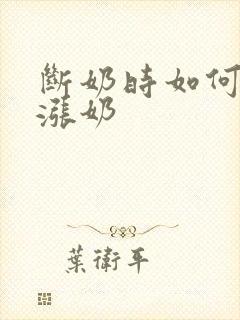 斷奶時如何
漲奶
葉衛平